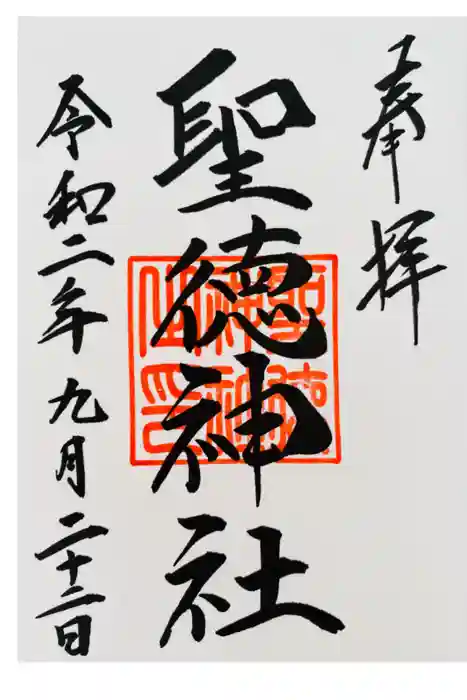 奉拝
聖徳神社
令和二年九月二十二日